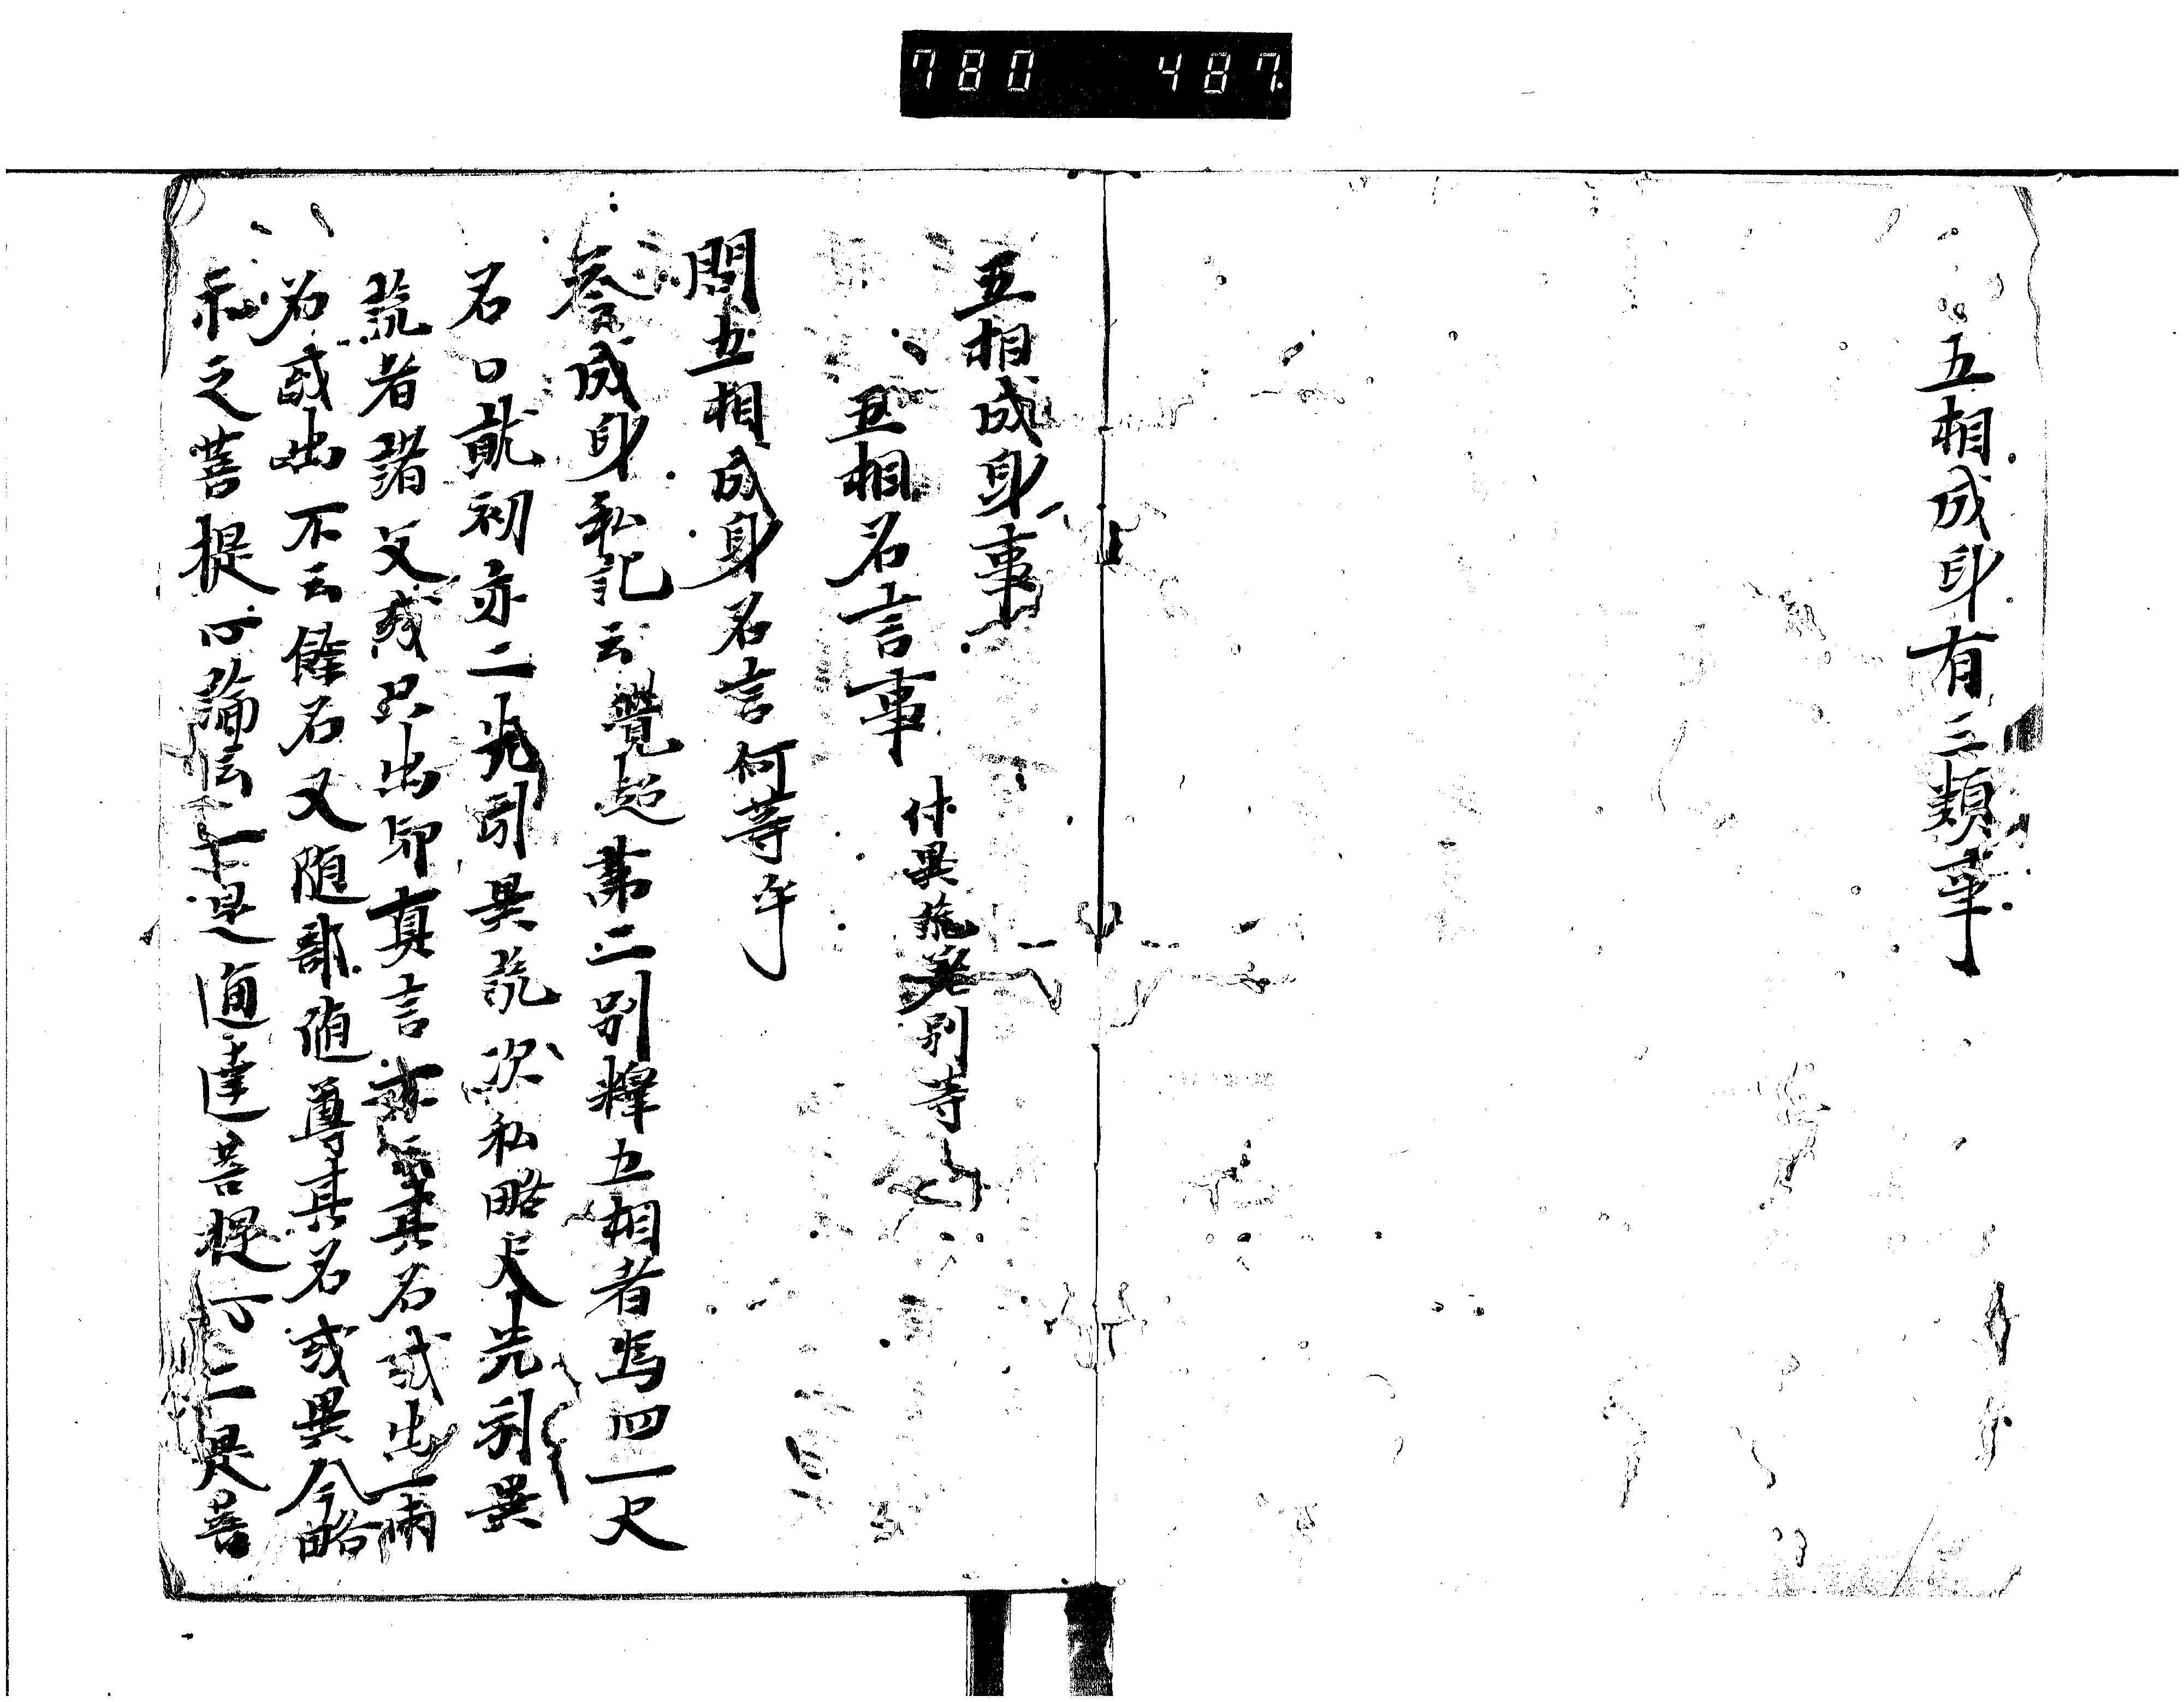 780 487
五相成身有三類事
五相成身事
五相名言事 付異説 別寺
問五相成身名言何等乎
答成身私記云覺超第二別釋五相者為四一尺
名口就初亦二先引異説次私略尺先引異
説者諸文或只出印真言亦其名或出一両
名或出不云餘名又随部値尊其名或異今略
示之菩提心論云一是通達菩提心二是菩